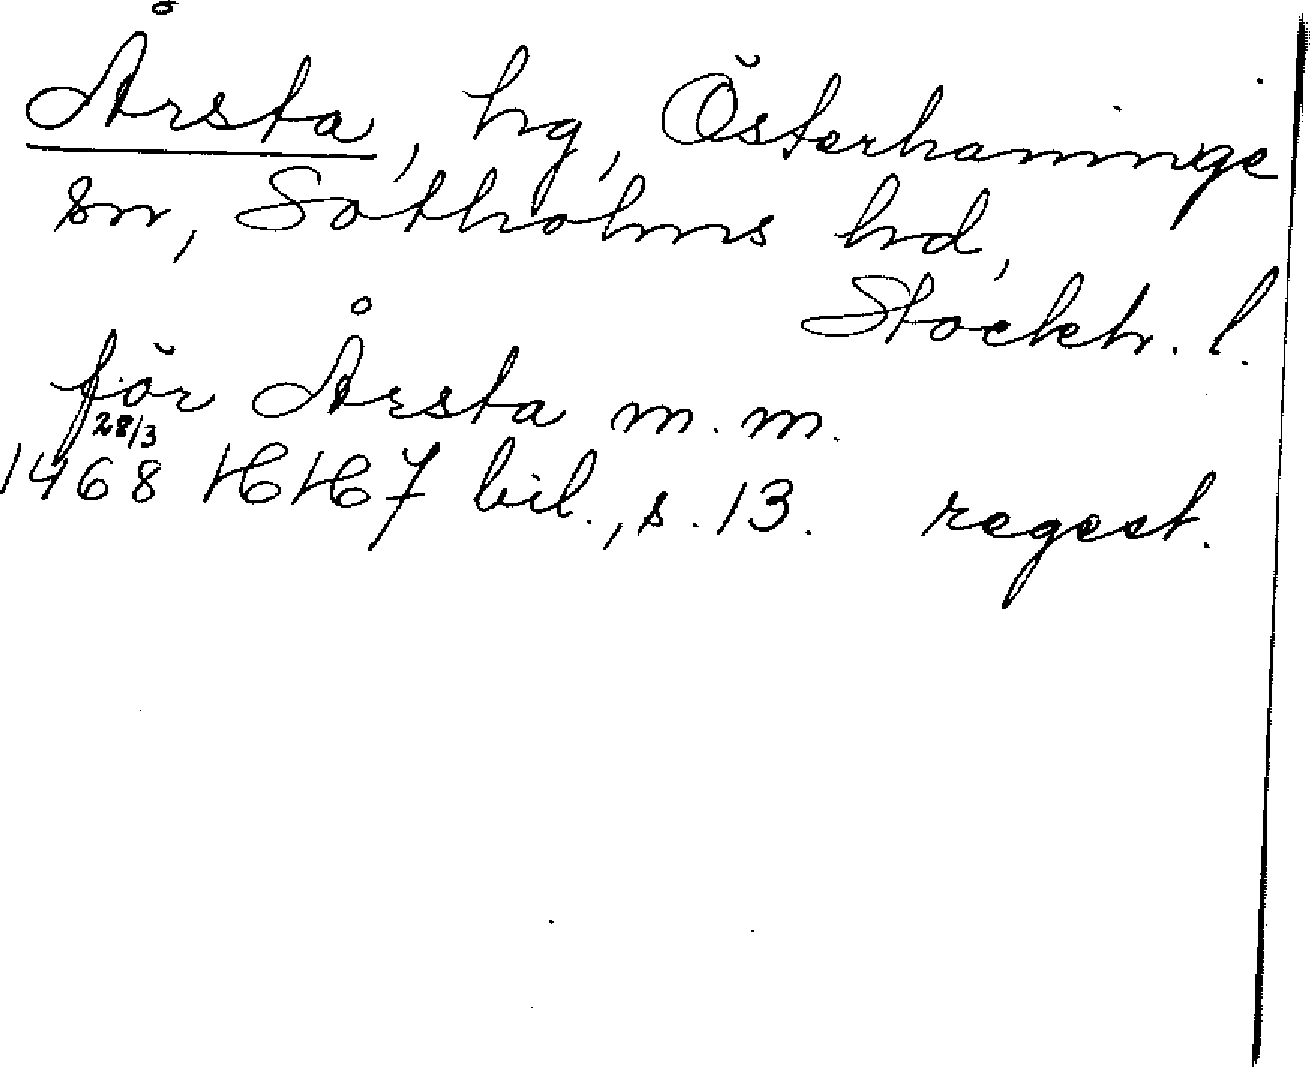 Årsta, hg, Österhaninge
sn, Sotholms hd,
Stockh. l.
för Årsta m.m.
28/3
1468 HH 7 bil., s. 13. regest.